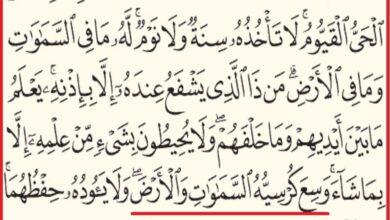 ٱلۡحَيُّ ٱلۡقَيُّومُۚ لَا تَأۡخُذُهُۥ سِنَةٞ وَلَا نَوۡمٞۚ لَّهُۥ مَا فِي ٱلسَّمَٰوَٰتِ
وَمَا فِي ٱلۡأَرۡضِۗ مَن ذَا ٱلَّذِي يَشۡفَعُ عِندَهُۥٓ إِلَّا بِإِذۡنِهِۦۚ يَعۡلَمُ
مَا بَيۡنَ أَيۡدِيهِمۡ وَمَا خَلۡفَهُمۡۖ وَلَا يُحِيطُونَ بِشَيۡءٖ مِّنۡ عِلۡمِهِۦٓ إِلَّا
بِمَا شَآءَۚ وَسِعَ كُرۡسِيُّهُ ٱلسَّمَٰوَٰتِ وَٱلۡأَرۡضَۖ وَلَا يَـُٔودُهُۥ حِفۡظُهُمَاۚ